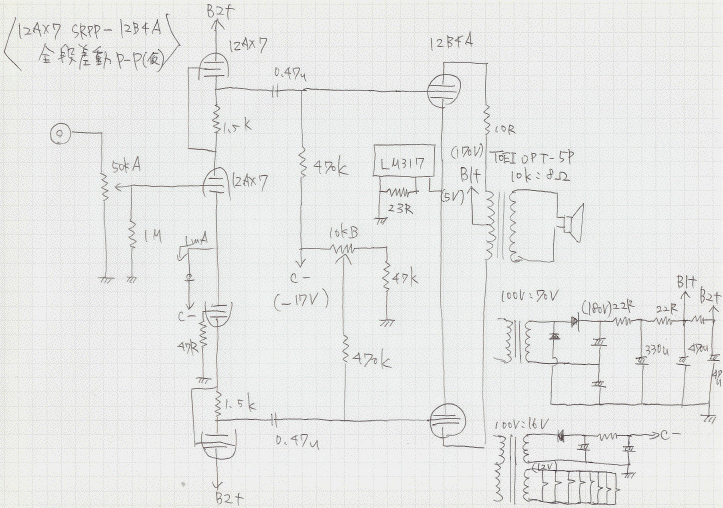 12AX7 SRPP-12B4A
全段差動P-P(仮)
B2+
12AX7
12B4A
0.47u
1.5k
10R
50kA
470k
LM317
(170V)
TOEI OPT-5P
10k:8Ω
12AX7
B1+
23R
(5V)
1M
10kB
1mA
C-
(-17V)
47k
C-
100V:70V
(180V)
22R
22R
B1+
B2+
47R
470k
330u
470u
47u
1.5k
0.47u
100V:16V
C-
(12V)
B2+